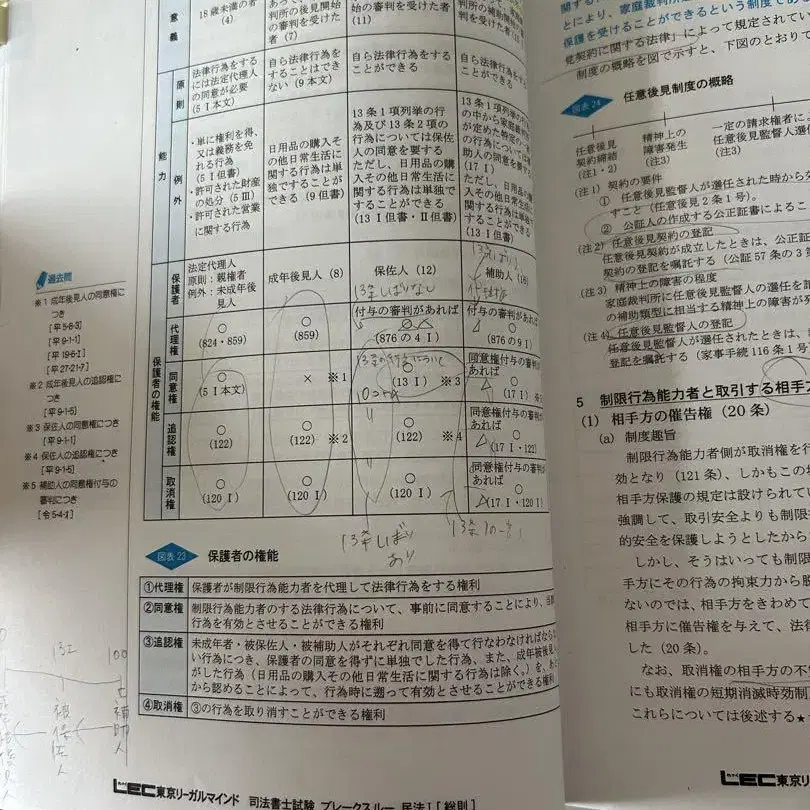 意義
18歳未満の者
(4)
判所の後見開始
の審判を受けた
者(7)
の審判を受けた者
(11)
判所の補助開始
の審判を受けた
原則
法律行為をする
には法定代理人
の同意が必要
(5Ⅰ本文)
自ら法律行為を
することはでき
ない(9本文)
自ら法律行為をする
ことができる
自ら法律行為をする
ことができる
能力
例外
・単に権利を得、
又は義務を免
れる行為
(5Ⅰ但書)
・許可された財産
の処分(5Ⅲ)
・許可された営業
に関する行為
日用品の購入そ
の他日常生活に
関する行為は単
独ですることが
できる(9但書)
13条1項列挙の行
為及び13条2項の
行為については保佐
人の同意を要する
ただし、日用品の購
入その他日常生活に
関する行為は単独で
することができる
(13Ⅰ但書・Ⅱ但書)
13条1項列挙の行
の中から家庭裁判
が定めた特定の
の行為については
助人の同意を要
(17Ⅰ)
ただし、日用品の
入その他日常生活
関する行為は単独
することができる
(13Ⅰ但書)
保護者
法定代理人
原則:親権者
例外:未成年後
見人
成年後見人(8)
保佐人(12)
13条しばりなし
補助人(16)
保護者の権能
代理権
○
(824・859)
○
(859)
付与の審判があれば
○
(876の4Ⅰ)
付与の審判があれば
○
(876の9Ⅰ)
同意権
○
(5Ⅰ本文)
× ※1
13条の行為について
○
(13Ⅰ) ※3
同意権付与の審判が
あれば
○
(17Ⅰ)
追認権
○
(122)
○
(122) ※2
○
(122) ※4
同意権付与の審判が
あれば
○
(17Ⅰ・122)
取消権
○
(120Ⅰ)
○
(120Ⅰ)
○
(120Ⅰ)
同意権付与の審判が
あれば
○
(17Ⅰ・120Ⅰ)
13条しばり
あり
過去問
※1 成年後見人の同意権に
つき
[平5-8-3]
[平9-1-1]
[平19-6-Ⅰ]
[平27-21-7]
※2 成年後見人の追認権に
つき
[平9-1-5]
※3 保佐人の同意権につき
[平9-1-1]
※4 保佐人の追認権につき
[平9-1-5]
※5 補助人の同意権付与の
審判につき
[令5-4-Ⅰ]
図表23 保護者の権能
①代理権 保護者が制限行為能力者を代理して法律行為をする権利
②同意権 制限行為能力者のする法律行為について、事前に同意することにより、当
行為を有効とさせることができる権利
③追認権 未成年者・被保佐人・被補助人がそれぞれ同意を得て行なわなければなら
い行為につき、保護者の同意を得ずに単独でした行為、また、成年被後見
がした行為(日用品の購入その他日常生活に関する行為は除く。)を、あと
から認めることによって、行為時に遡って有効とさせることができる権利
④取消権 ③の行為を取り消すことができる権利
0
131
100
被保佐人
補助人
LEC東京リーガルマインド 司法書士試験 ブレークスルー 民法Ⅰ[総則]
とにより、家庭裁判所
保護を受けることができるという制度であ
見契約に関する法律」によって規定されてい
制度の概略を図で示すと、下図のとおり
図表24 任意後見制度の概略
任意後見
契約締結
(注1・2)
精神上の
障害発生
(注3)
一定の請求権者に
任意後見監督人選任
(注3)
(注1)契約の要件
① 任意後見監督人が選任された時から効
すこと(任意後見2条1号)。
② 公証人の作成する公正証書によるこ
(注2)任意後見契約の登記
任意後見契約が成立したときは、公正証
契約の登記を嘱託する(公証57条の3第
(注3)精神上の障害の程度
家庭裁判所に任意後見監督人の選任を請
の補助類型に相当する精神上の障害が発
(注4)任意後見監督人の登記
任意後見監督人が選任されたときは、
登記を嘱託する(家事手続116条1号
5 制限行為能力者と取引する相手方
(1) 相手方の催告権(20条)
(a) 制度趣旨
制限行為能力者側が取消権を行
効となり(121条)、しかもこの
相手方保護の規定は設けられて
強調して、取引安全よりも制限
的安全を保護しようとしたから
しかし、そうはいっても制限
手方にその行為の拘束力から脱
ないのでは、相手方をきわめて
手方に催告権を与えて、法律
した(20条)。
なお、取消権の相手方の不
にも取消権の短期消滅時効制
これらについては後述する★
LEC東